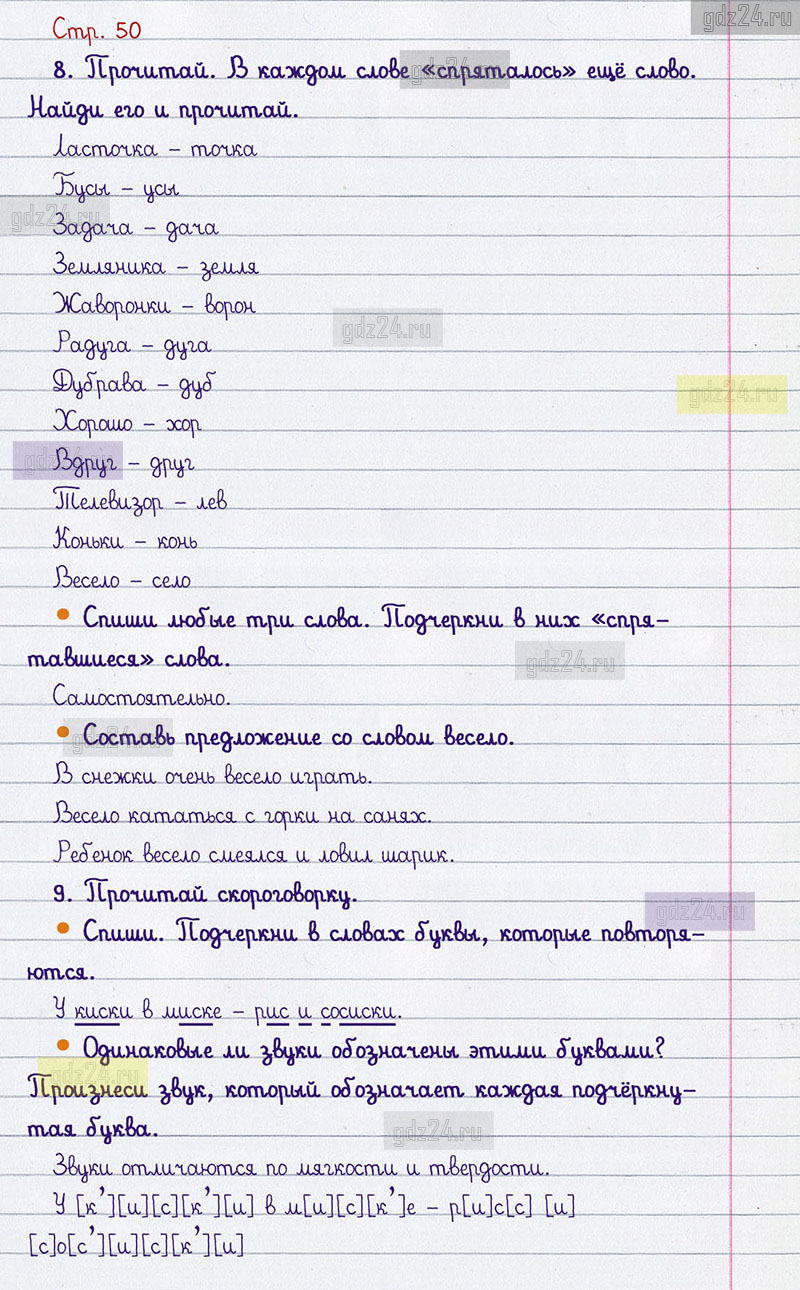 gdz24.ru
Стр. 50
8. Прочитай. В каждом слове «спряталось» ещё слово.
gdz24.ru
Найди его и прочитай.
Ласточка – точка
Бусы – усы
gdz24.ru
Задача – дача
Земляника – земля
Жаворонки – ворон
gdz24.ru
Радуга – дуга
Дубрава – дуб
gdz24.ru
Хорошо – хор
Вдруг – друг
gdz24.ru
Телевизор – лев
Коньки – конь
Весело – село
• Спиши любые три слова. Подчеркни в них «спря–
тавшиеся» слова.
gdz24.ru
Самостоятельно.
• Составь предложение со словом весело.
gdz24.ru
В снежки очень весело играть.
Весело кататься с горки на санях.
Ребенок весело смеялся и ловил шарик.
9. Прочитай скороговорку.
gdz24.ru
• Спиши. Подчеркни в словах буквы, которые повторя–
ются.
У киски в миске – рис и сосиски.
• Одинаковые ли звуки обозначены этими буквами?
gdz24.ru
Произнеси звук, который обозначает каждая подчёркну–
тая буква.
gdz24.ru
Звуки отличаются по мягкости и твердости.
У [к’][и][с][к’][и] в м[и][с][к’]е – р[и]с[с] [и]
[с]о[с’][и][с][к’][и]